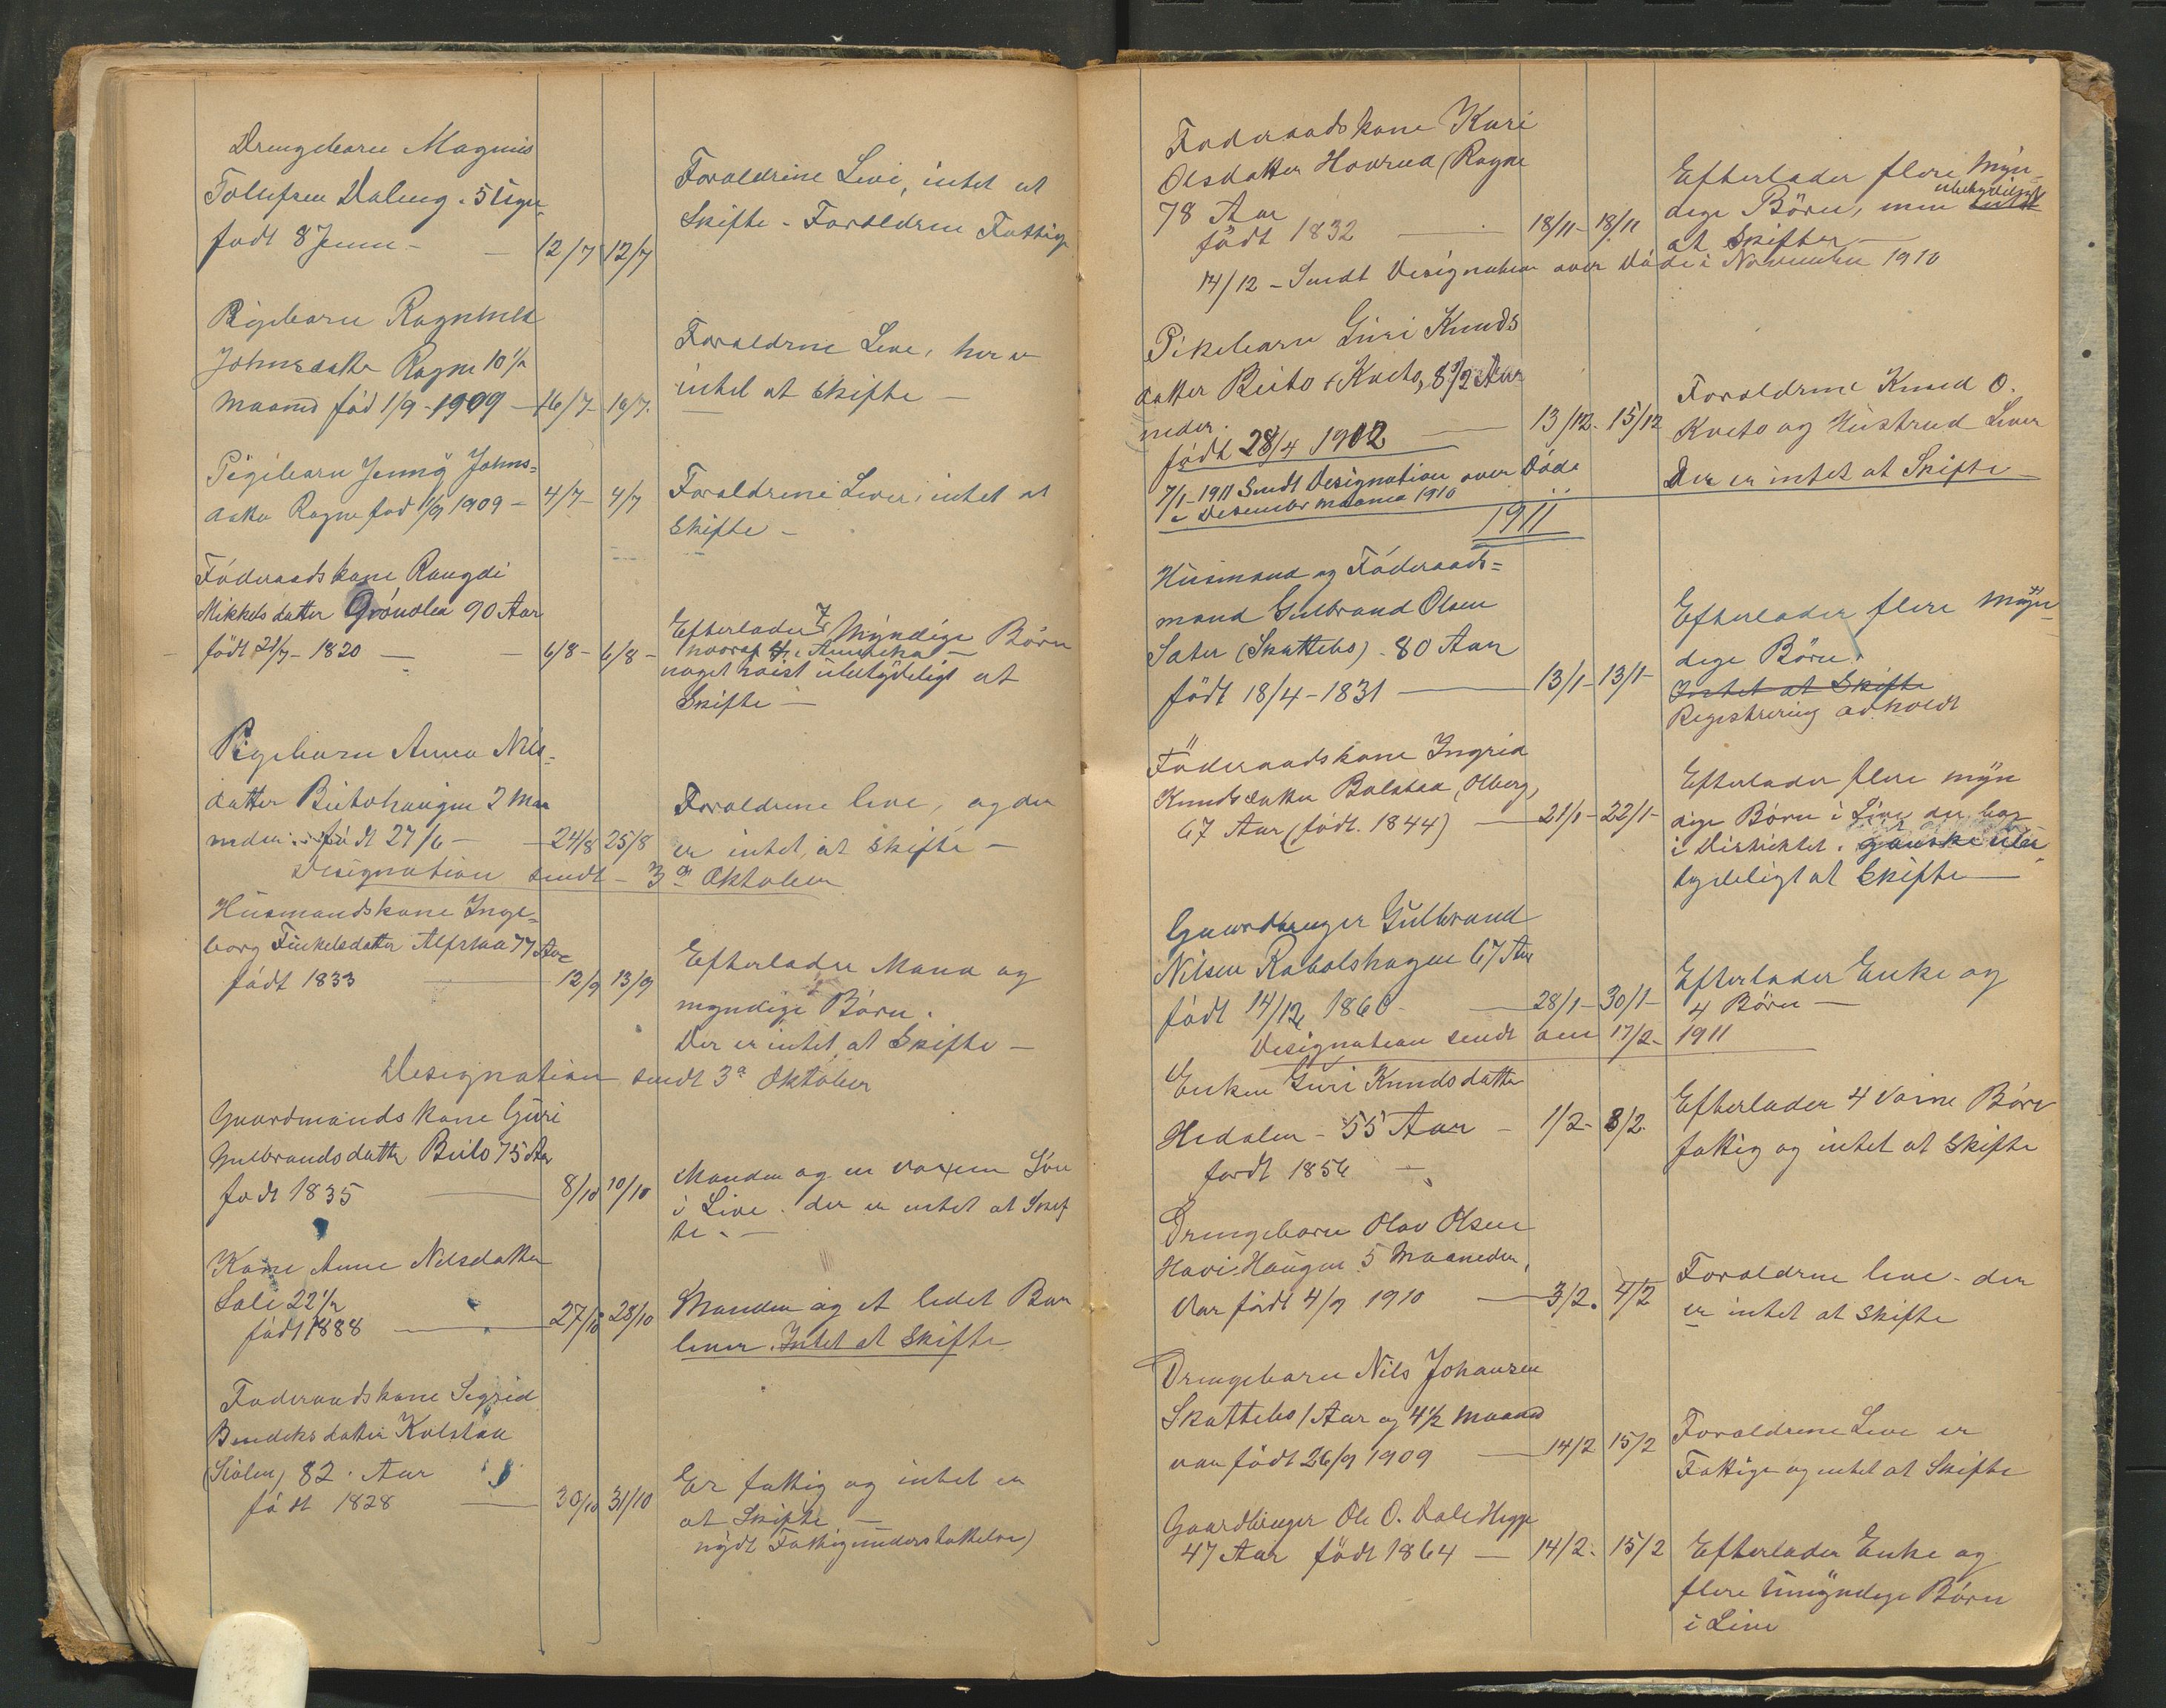 Drengebarn Magnus
Tollefsen Daleng. 5 Uger
født 8 Juni - 12/7 12/7
Forældrene Leve, intet at
Skifte - Forældrene Fattige
Pigebarn Ragnhild
Johnsdatter Rogne 10 1/2
Maaned fød 1/9-1909 - 16/7- 16/7.
Forældrene Leve, her er
intet at skifte -
Pigebarn Jenny Johns=
datter Rogne fød 1/9 1909 - 4/7- 4/7
Forældrene Lever, intet at
skifte -
Föderaadskone Rangdi
Mikkelsdatter Grönolen 90 Aar
født 21/7- 1820 - 6/8- 6/8-
Efterlader 7 Myndige Börn
hvoraf i Amerika -
noget höist ubetydeligt at
Skifte -
Pigebarn Anna Nils-
datter Beitohaugen 2 Maa
neder. født 27/6 - 24/8 25/8
Forældrene leve, og der
er intet at skifte -
Designation sendt - 3die Oktober
Husmandskone Inge-
borg Finkelsdatter Alfstad 77 Aar
født 1833 12/9 13/9
Efterlader Mand og
myndige Börn.
Der er intet at Skifte -
Designation sendt 3die Oktober
Gaardmandskone Guri
Gulbrandsdatter Beito 75 Aar
født 1835 8/10 10/10
Manden og en voxen Sön
i Live. der er intet at Skif
te. -
Kone Anne Nilsdatter
Sale 22 1/2
født 1888 27/10 28/10
Manden og et lidet Barn
lever. Intet at Skifte
Føderaadskone Sigrid
Bendiksdatter Kolstad
82. Aar
født 1828 30/10 31/10
Er fattig og intet er
at Skifte -
nydt Fattigunderstøttelse)
Føderaadskone Kari
Olsdatter Hovrud (Rogne
78 Aar
født 1832 18/11- 18/11
Efterlader flere Myn-
dige Börn, men ubetydeligt
at Skifte -
14/12 - Sendt Designation over Döde i November 1910
Pikebarn Guri Knuds
datter Beito (Kveto, 8 1/2 Aar
neder.
født 28/4 1902 13/12. 15/12
Forældrene Knud O.
Kveto og Hustrud Lever
Der er intet at Skifte
7/1-1911 Sendt Designation over Döde
i Desember maaned 1910
1911
Husmand og Föderaads=
mand Gulbrand Olsen
Sæter (Skattebo) - 80 Aar
født 18/4-1831 13/1- 13/1-
Efterlader flere Myn-
dige Börn.
Intet at Skifte
Registrering avholdt
Föderaadskone Ingrid
Knudsdatter Bolstad, Olberg,
67 Aar (født. 1844) 21/1- 22/1-
Efterlader flere myn
dige Börn i Live der bor
i Distriktet. ganske ube-
tydeligt at Skifte
Gaardbruger Gulbrand
Nilsen Rabalshagen 67 Aar
født 14/12 1860 28/1- 30/1-
Efterlader Enke og
4 Börn -
Designation sendt den 17/2- 1911
Enken Guri Knudsdatter
Hedalen - 55 Aar - 1/2- 8/2.
født 1856
Efterlader 4 voxne Börn
fattig og intet at Skifte
Drengebarn Olav Olsen
Havi Haugen 5 Maaneder,
Var født 4/9 1910 3/2. 4/2
Forældrene leve - der
er intet at skifte
Drengebarn Nils Johansen
Skattebo 1 Aar og 4 1/2 Maaned
var født 26/9 1909 14/2 15/2
Forældrene Leve er
Fattige og intet at Skifte
Gaardbruger Ole O. Dale Hegge
47 Aar født 1864 - 14/2. 15/2
Efterlader Enke og
flere Umyndige Börn
i Live